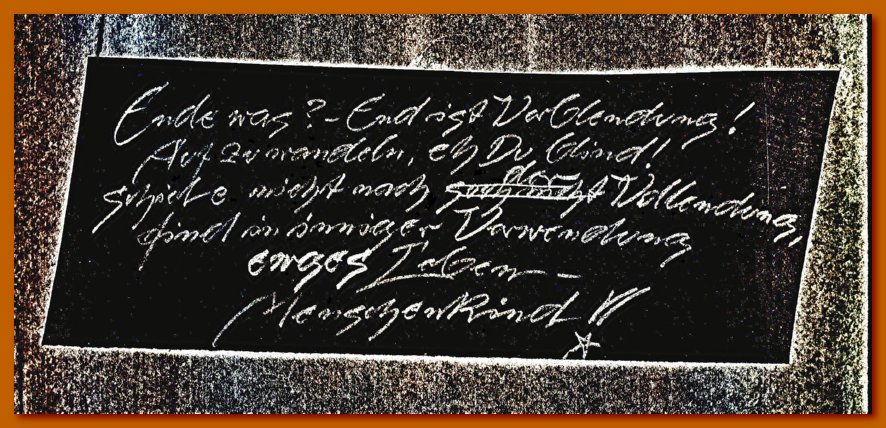 Ende was? - End ist Verblendung!
Auf zu wandeln, eh Du blind!
schiele nicht nach der Vollendung,
find in inniger Verwendung
ewges Leben -
Menschenkind!!